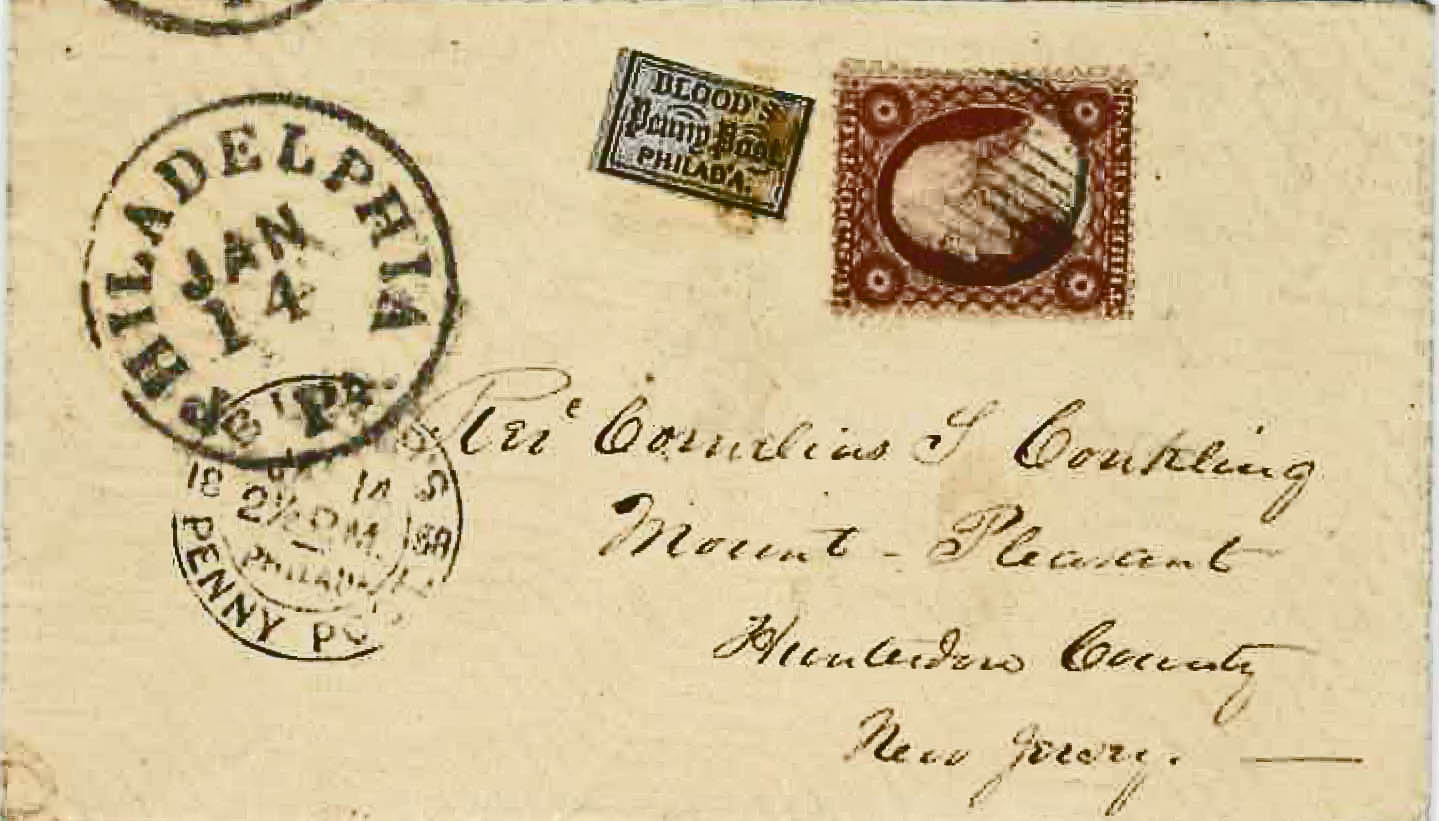 BLOOD'S
Penny Post
PHILAD'A.
U.S. POSTAGE
THREE CENTS
PHILADELPHIA
JAN
14
PA
18 14
2½ P.M.
PHILADA
PENNY PO
Rev Cornelius S Conkling
Mount-Pleasant
Hunterdon County
New Jersey. —